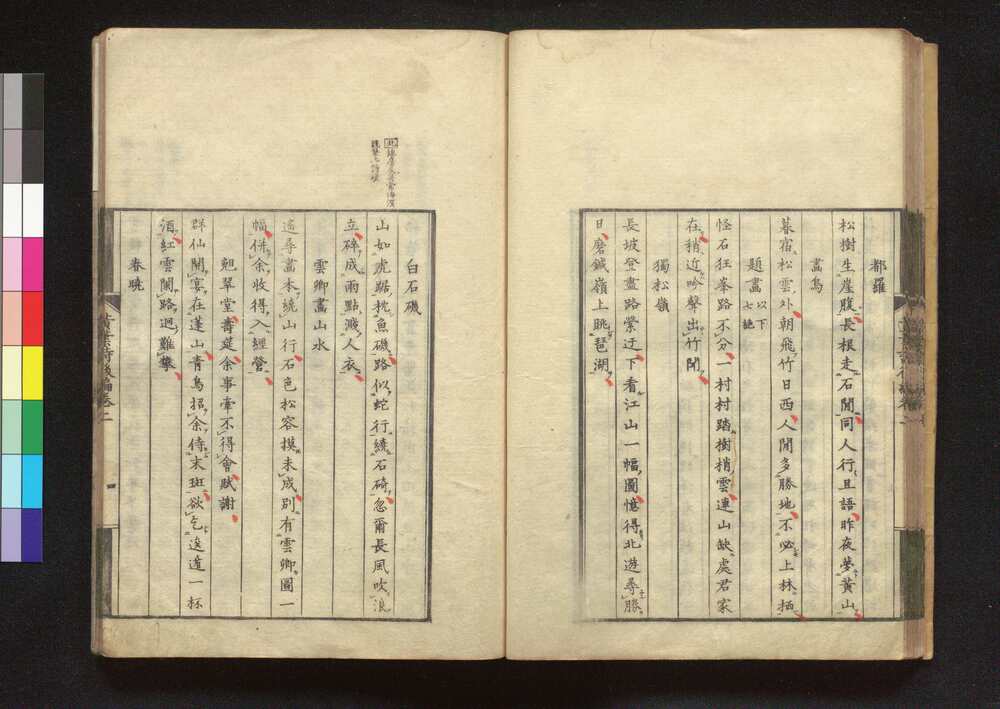 都羅
松樹生崖腹長根走石間同人行且語昨夜夢黃山
畫鳥
暮宿松雲外朝飛竹日西人間多勝地不必上林栖
題畫以下七絶
怪石狂峯路不分一村村踏樹梢雲連山缺處君家
在稍近吟聲出竹聞
獨松嶺
長坡登盡路縈迂下看江山一幅圖憶得北遊尋勝
日磨鍼嶺上眺琶湖
白石磯
山如虎踞枕魚磯路似蛇行繞石碕忽爾長風吹浪
立碎成雨點濺人衣
雲卿畫山水
遙尋畫本繞山行石色松容摸未成別有雲卿圖一
幅併余收得入經營
翠堂壽筵余事牽不得會賦謝
群仙開宴在蓬山青鳥招余侍末班欲乞逡遁一杯
酒紅雲闌路迥難攀
春曉
黃葉夕陽邨舍詩後編卷二
四